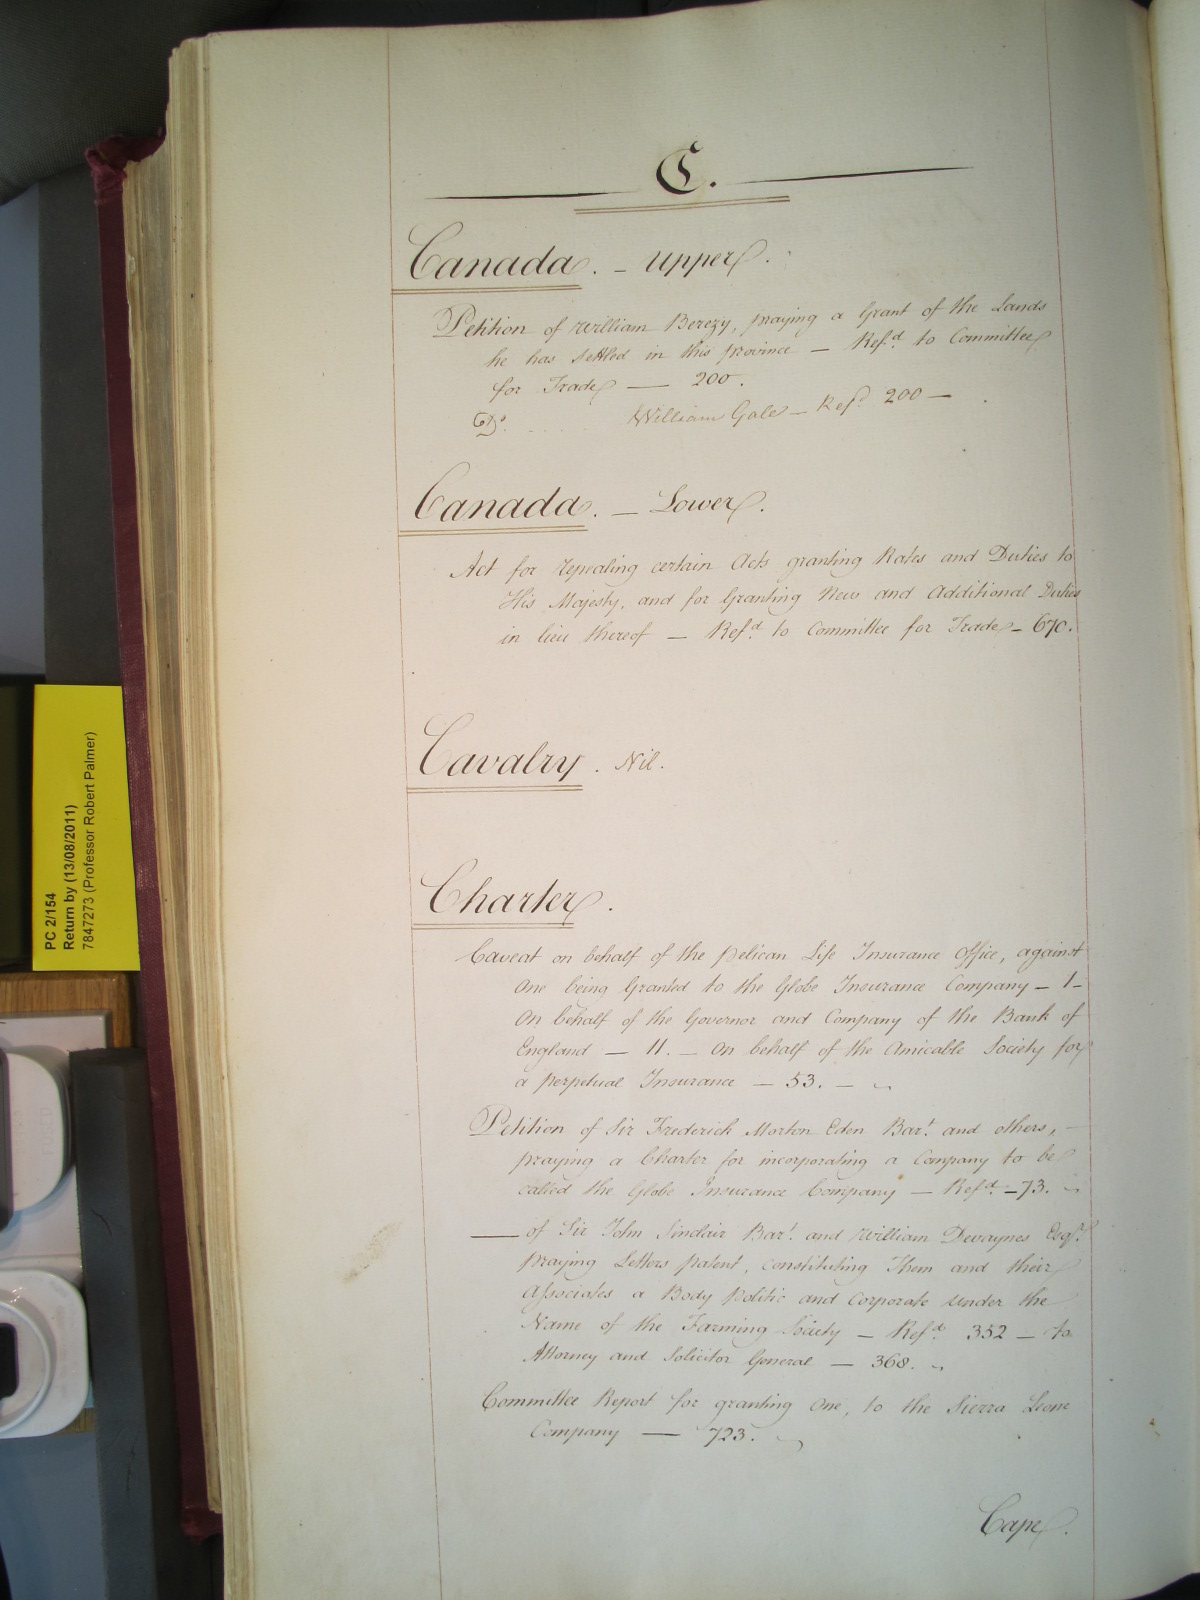 C.
Canada. - Upper.
Petition of William Berczy, praying a Grant of the Lands
he has settled in this province — Ref.d to Committee
for Trade — 200.
Do. .... William Gale — Ref.d 200 —
Canada. — Lower.
Act for repealing certain Acts granting Rates and Duties to
His Majesty, and for Granting New and Additional Duties
in lieu thereof — Ref.d to Committee for Trade — 670.
Cavalry. Nil.
Charter.
Caveat on behalf of the Pelican Life Insurance Office, against
one being Granted to the Globe Insurance Company — 1 —
On behalf of the Governor and Company of the Bank of
England — 11. — On behalf of the Amicable Society for
a perpetual Insurance — 53. —
Petition of Sir Frederick Morton Eden Bart. and others, —
praying a Charter for incorporating a Company to be
called the Globe Insurance Company — Ref.d — 73.
— of Sir John Sinclair Bart. and William Devaynes Esqr.
praying Letters patent, constituting Them and their
Associates a Body Politic and Corporate under the
Name of the Farming Society — Ref.d 352 — to
Attorney and Solicitor General — 368.
Committee Report for granting One, to the Sierra Leone
Company — 723.
Cape.
PC 2/154
Return by (13/08/2011)
7847273 (Professor Robert Palmer)